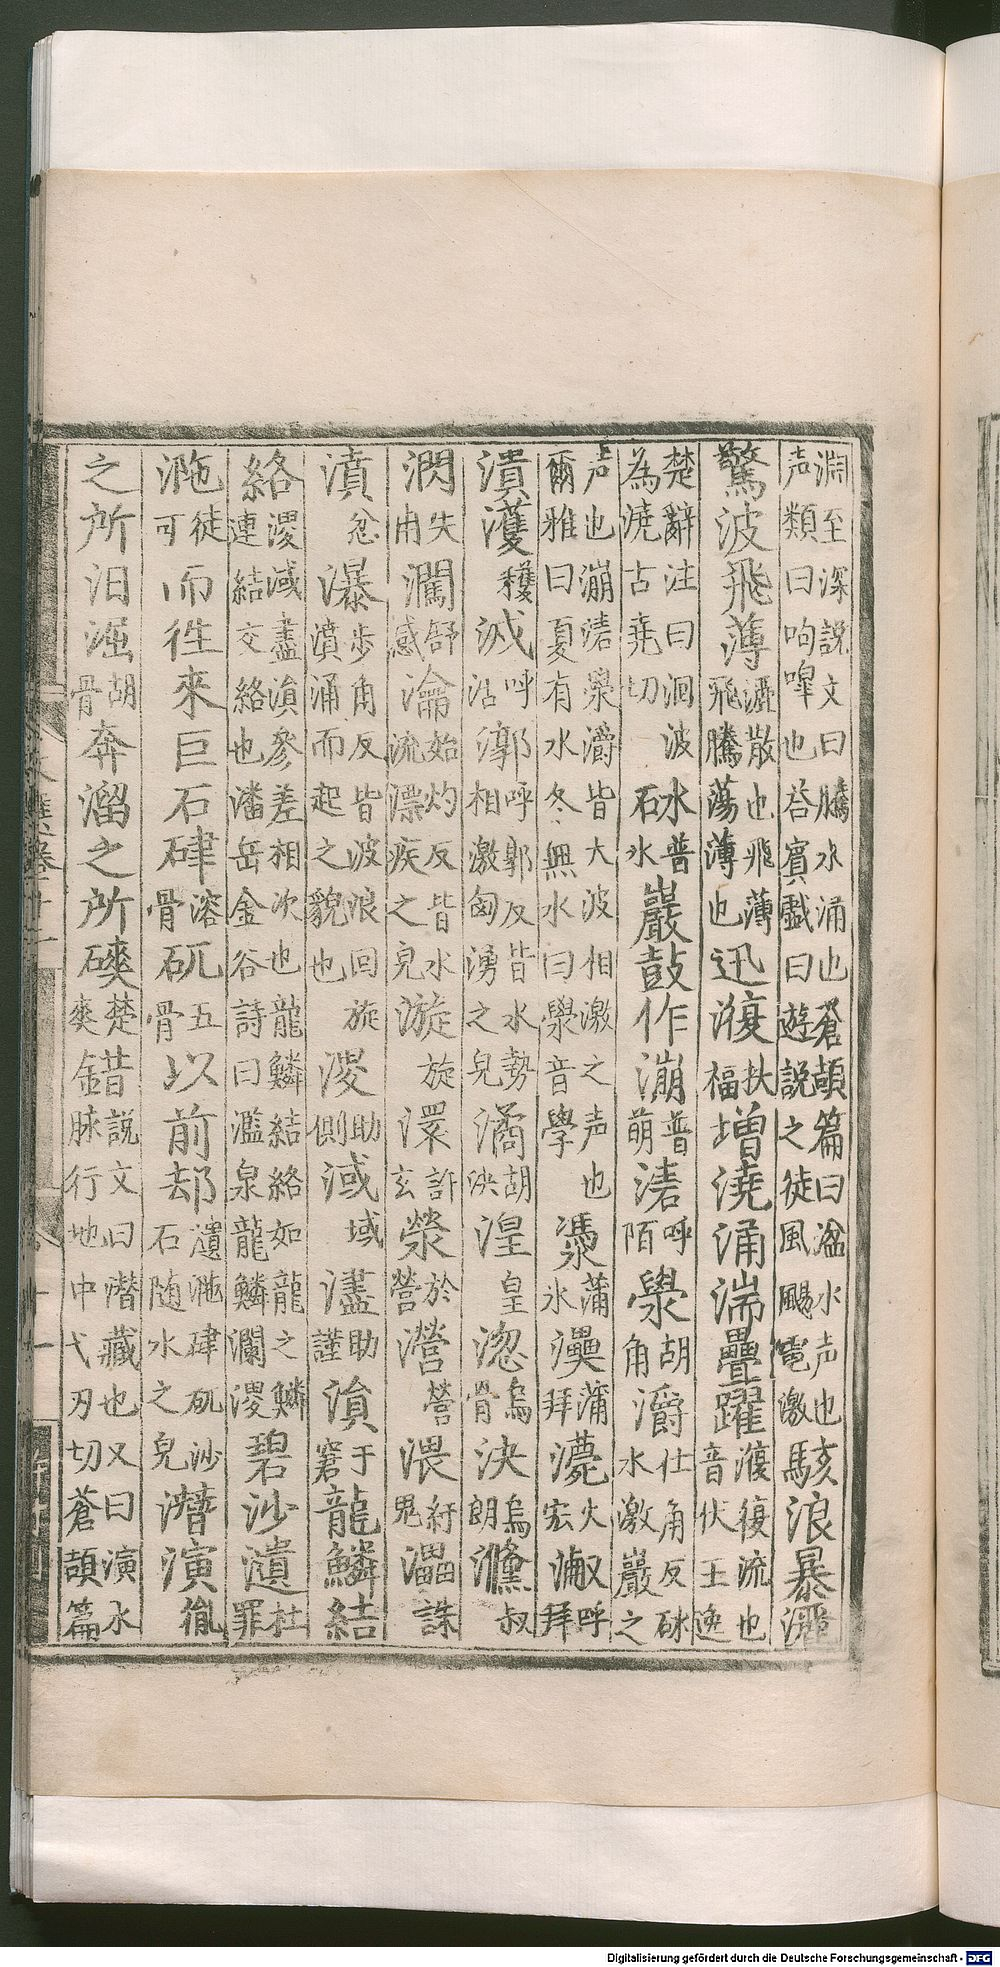 淵至深說文曰騰水涌也蒼頡篇曰湓水声也声類曰呴嘷也荅賓戲曰遊說之徒風颺電激駭浪暴灑
驚波飛薄灑散也飛薄飛騰蕩薄也迅澓扶福増澆涌湍疊躍澓復流也音伏王逸
楚辭注曰洄波為澆古堯切砯普水巖鼓作漰普萌湱呼陌澩胡角灂仕角反砯水激巖之
声也漰湱澩灂皆大波相激之声也爾雅曰夏有水冬無水曰澩音學蒲氷蒲拜火宏呼拜
潰濩穫泧呼活漷呼郭反皆水勢相激匈湧之皃潏胡決湟皇淴烏骨泱烏朗叔
潣失冉瀾舒感瀹始灼反皆水流漂疾之皃漩旋澴許玄滎於營瀯營渨紆鬼㵢誅
濆忿瀑步角反皆波浪回旋濆涌而起之貌也溭助側淢域濜助謹溳于窘龍鱗結
絡溭淢濜溳參差相次也龍鱗結絡如龍之鱗連結交絡也潘岳金谷詩曰濫泉龍鱗瀾溭碧沙瀢杜罪
㴰徒可而徃來巨石硉溶骨矹五骨以前却瀢㴰硉矹沙石随水之皃潛演胤
之所汩淈胡骨奔溜之所磢楚爽錯說文曰潛藏也又曰演水脉行地中弋刃切蒼頡篇
Digitalisierung gefördert durch die Deutsche Forschungsgemeinschaft - DFG